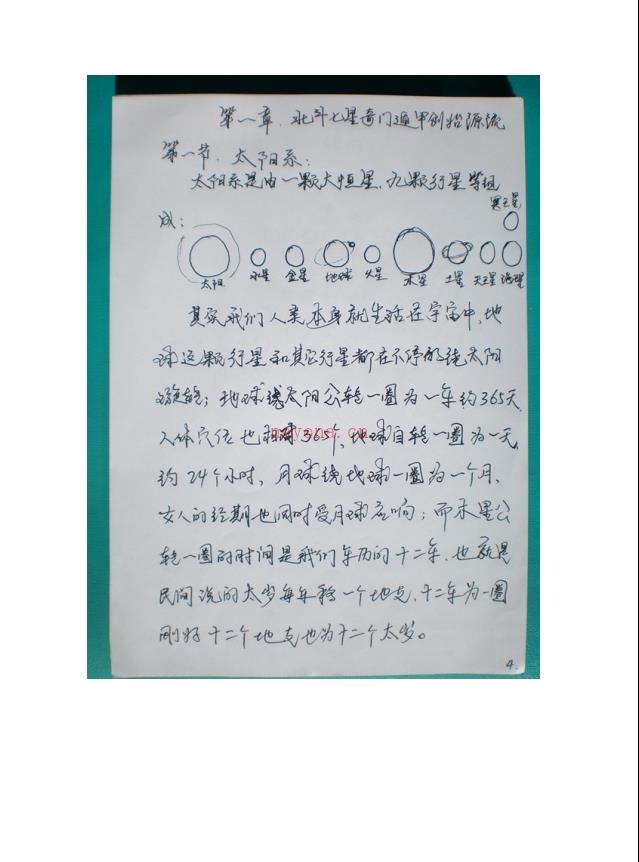 第一章.北斗七星奇门遁甲创始源流
第一节.太阳系:
太阳系是由一颗大恒星.九颗行星等组
冥王星
成:
太阳 水星 金星 地球 火星 木星 土星 天王星 海王星
其实我们人类本身就生活在宇宙中,地
球这颗行星和其它行星都在不停的绕太阳
旋转;地球绕太阳公转一圈为一年约365天.
人体穴位也365个,地球自转一圈为一天,
约24个小时,月球绕地球一圈为一个月,
女人的经期也同时受月球影响;而木星公
转一圈的时间是我们年历的十二年,也就是
民间说的太岁每年移一个地支,十二年为一圈
刚好十二个地支也为十二个太岁。
nayona.cn
4